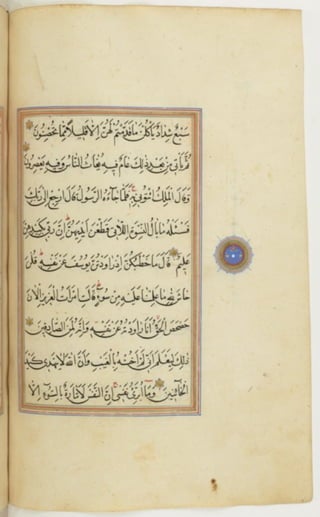 سَبْعٌ شِدَادٌ يَأْكُلْنَ مَا قَدَّمْتُمْ لَهُنَّ إِلَّا قَلِيلًا مِمَّا تُحْصِنُونَ
ثُمَّ يَأْتِي مِنْ بَعْدِ ذَلِكَ عَامٌ فِيهِ يُغَاثُ النَّاسُ وَفِيهِ يَعْصِرُونَ
وَقَالَ الْمَلِكُ ائْتُونِي بِهِ فَلَمَّا جَاءَهُ الرَّسُولُ قَالَ ارْجِعْ إِلَى رَبِّكَ
فَسْئَلْهُ مَا بَالُ النِّسْوَةِ اللَّاتِي قَطَّعْنَ أَيْدِيَهُنَّ إِنَّ رَبِّي بِكَيْدِهِنَّ
عَلِيمٌ قَالَ مَا خَطْبُكُنَّ إِذْ رَاوَدْتُنَّ يُوسُفَ عَنْ نَفْسِهِ قُلْنَ
حَاشَ لِلَّهِ مَا عَلِمْنَا عَلَيْهِ مِنْ سُوءٍ قَالَتِ امْرَأَتُ الْعَزِيزِ الْآنَ
حَصْحَصَ الْحَقُّ أَنَا رَاوَدْتُهُ عَنْ نَفْسِهِ وَإِنَّهُ لَمِنَ الصَّادِقِينَ
ذَلِكَ لِيَعْلَمَ أَنِّي لَمْ أَخُنْهُ بِالْغَيْبِ وَأَنَّ اللَّهَ لَا يَهْدِي كَيْدَ
الْخَائِنِينَ وَمَا أُبَرِّئُ نَفْسِي إِنَّ النَّفْسَ لَأَمَّارَةٌ بِالسُّوءِ إِلَّا